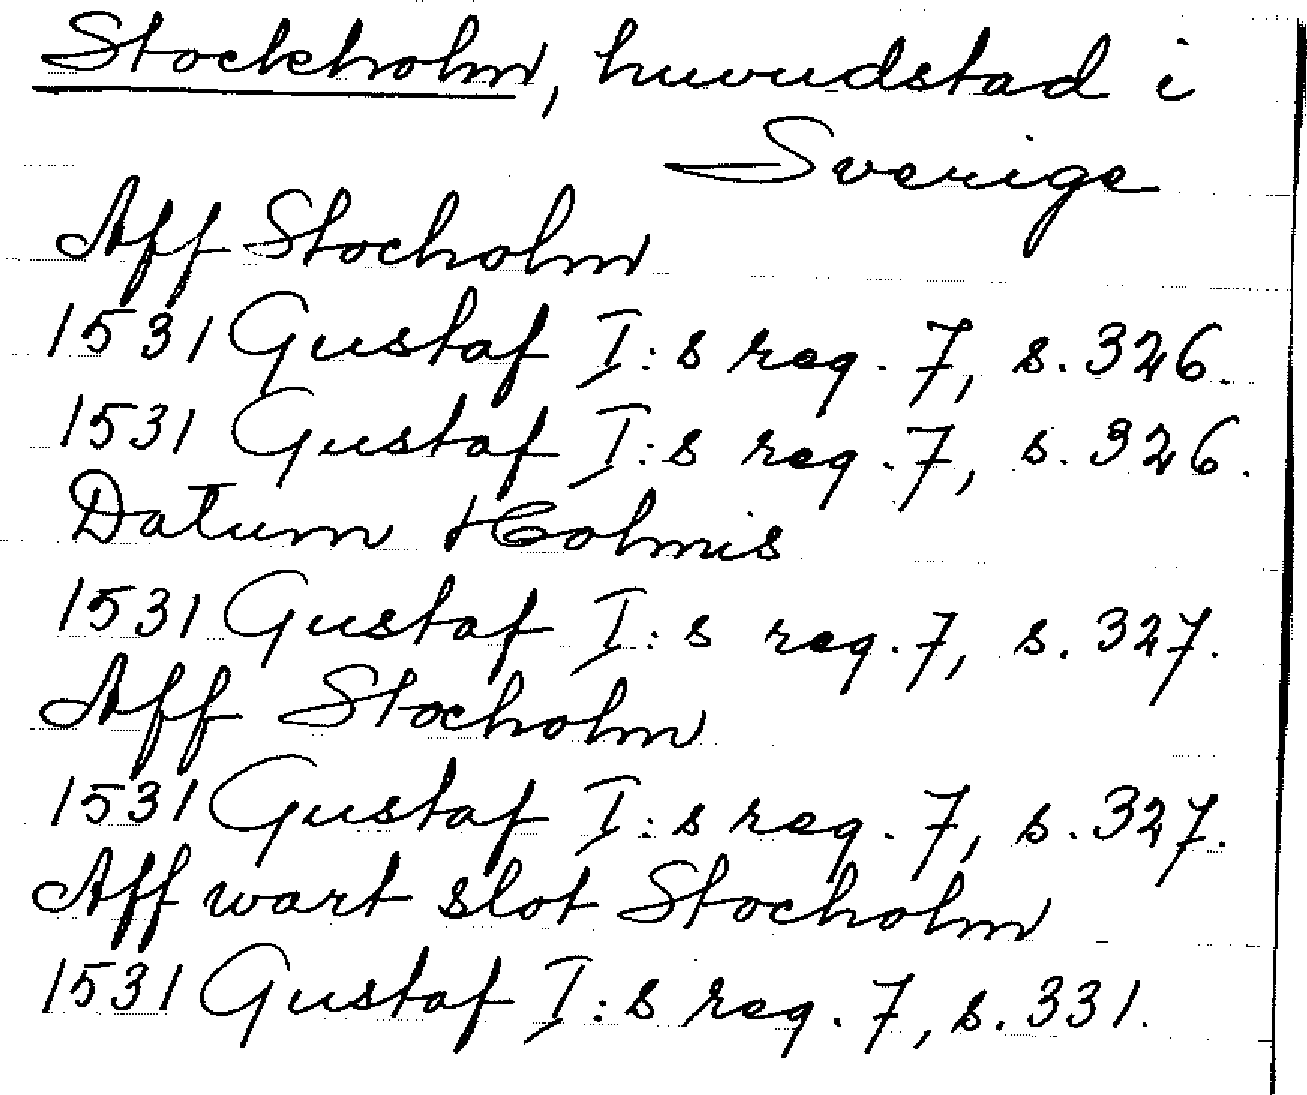 Stockholm, huvudstad i
Sverige
Aff Stocholm
1531 Gustaf I:s reg. 7, s. 326.
1531 Gustaf I:s reg. 7, s. 326.
Datum Holmis
1531 Gustaf I:s reg. 7, s. 327.
Aff Stocholm
1531 Gustaf I:s reg. 7, s. 327.
Aff wart slot Stocholm
1531 Gustaf I:s reg. 7, s. 331.